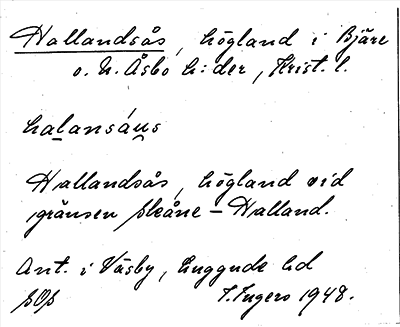 Hallandsås, högland i Bjäre
o. N. Åsbo h:der, Krist. l.
halansáus
Hallandsås, högland vid
gränsen Skåne – Halland.
Ant. i Väsby, Luggude hd
SOS T. Ingers 1948.